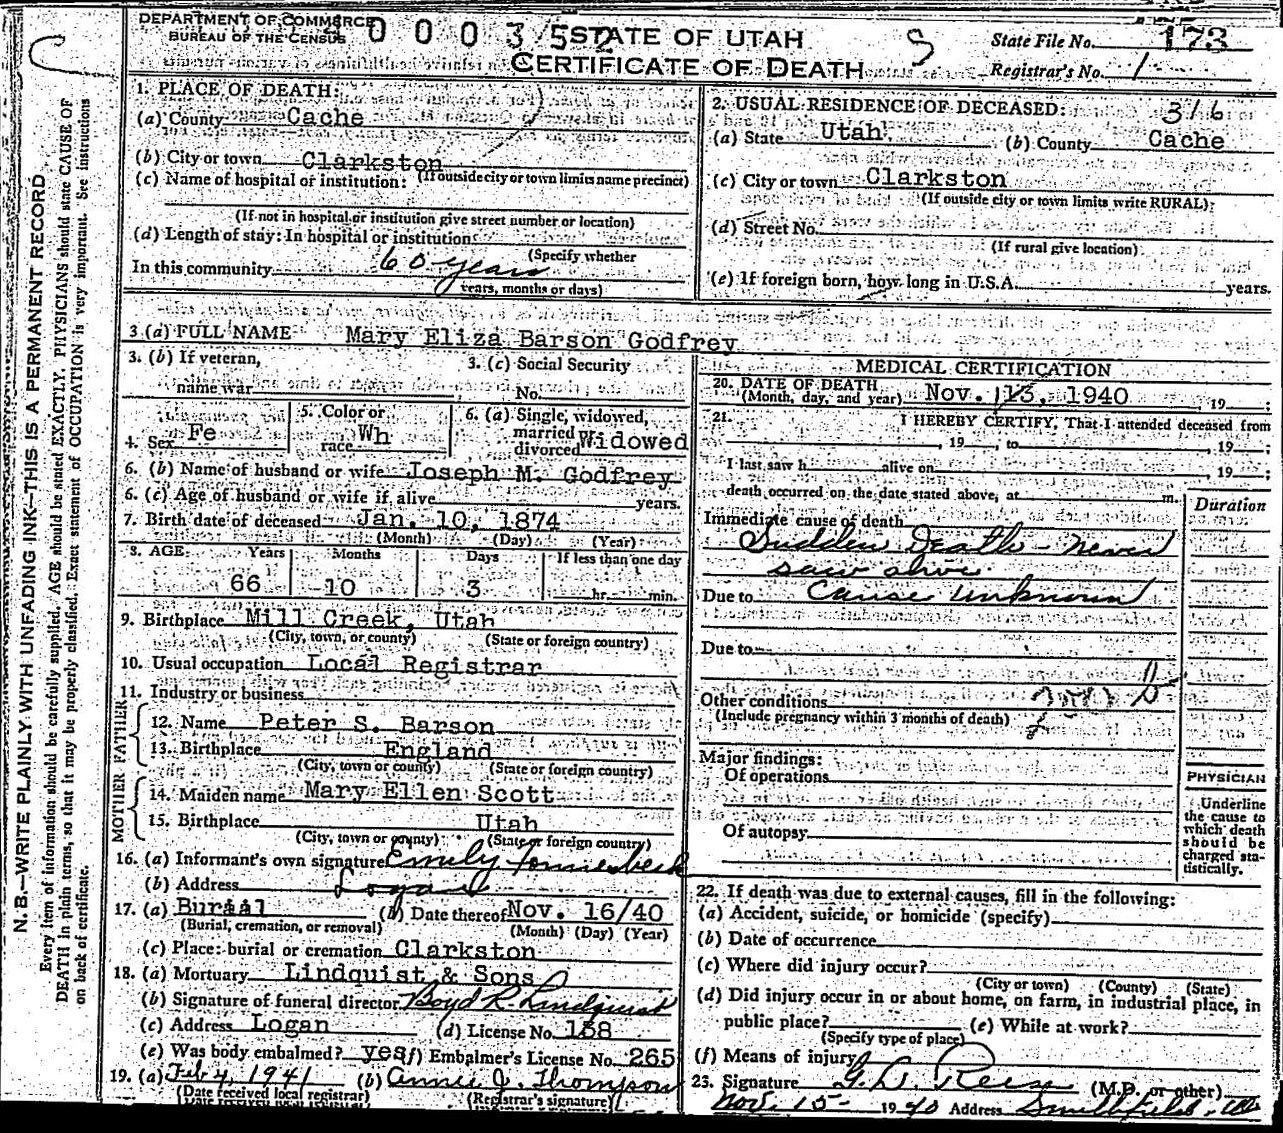 DEPARTMENT OF COMMERCE
BUREAU OF THE CENSUS
STATE OF UTAH
CERTIFICATE OF DEATH
State File No. 173
Registrar's No. 1
1. PLACE OF DEATH:
(a) County Cache
(b) City or town Clarkston
(If outside city or town limits name precinct)
(c) Name of hospital or institution:
(If not in hospital or institution give street number or location)
(d) Length of stay: In hospital or institution
(Specify whether
In this community 60 years
years, months or days)
2. USUAL RESIDENCE OF DECEASED: 316
(a) State Utah (b) County Cache
(c) City or town Clarkston
(If outside city or town limits write RURAL)
(d) Street No.
(If rural give location)
(e) If foreign born, how long in U.S.A. years.
3 (a) FULL NAME Mary Eliza Barson Godfrey
3. (b) If veteran,
name war
3. (c) Social Security
No.
4. Sex Fe
5. Color or
race Wh
6. (a) Single, widowed,
married
divorced Widowed
6. (b) Name of husband or wife Joseph M. Godfrey
6. (c) Age of husband or wife if alive years.
7. Birth date of deceased Jan. 10, 1874
(Month) (Day) (Year)
8. AGE Years Months Days If less than one day
66 10 3 hr. min.
9. Birthplace Mill Creek, Utah
(City, town, or county) (State or foreign country)
10. Usual occupation Local Registrar
11. Industry or business
FATHER
12. Name Peter S. Barson
13. Birthplace England
(City, town or county) (State or foreign country)
MOTHER
14. Maiden name Mary Ellen Scott
15. Birthplace Utah
(City, town or county) (State or foreign country)
16. (a) Informant's own signature Emily
(b) Address Logan
17. (a) Buraal (b) Date thereof Nov. 16/40
(Burial, cremation, or removal) (Month) (Day) (Year)
(c) Place: burial or cremation Clarkston
18. (a) Mortuary Lindquist & Sons
(b) Signature of funeral director Boyd R. Lindquist
(c) Address Logan (d) License No. 138
(e) Was body embalmed? yes (f) Embalmer's License No. 265
19. (a) Feb 4, 1941 (b) Annie J. Thompson
(Date received local registrar) (Registrar's signature)
MEDICAL CERTIFICATION
20. DATE OF DEATH
(Month, day, and year) Nov. 13, 1940, 19 ;
21. I HEREBY CERTIFY, That I attended deceased from
, 19 , to , 19 ;
I last saw h alive on 19 ;
death occurred on the date stated above, at m.
Duration
Immediate cause of death
Sudden Death - never
saw alive.
Due to Cause unknown
Due to
Other conditions
(Include pregnancy within 3 months of death)
Major findings:
Of operations
Of autopsy
PHYSICIAN
Underline
the cause to
which death
should be
charged sta-
tistically.
22. If death was due to external causes, fill in the following:
(a) Accident, suicide, or homicide (specify)
(b) Date of occurrence
(c) Where did injury occur?
(City or town) (County) (State)
(d) Did injury occur in or about home, on farm, in industrial place, in
public place? (e) While at work?
(Specify type of place)
(f) Means of injury
23. Signature Rees (M.D. or other)
Nov. 15- 1940 Address Smithfield,
N. B.—WRITE PLAINLY WITH UNFADING INK—THIS IS A PERMANENT RECORD
Every item of information should be carefully supplied. AGE should be stated EXACTLY. PHYSICIANS should state CAUSE OF
DEATH in plain terms, so that it may be properly classified. Exact statement of OCCUPATION is very important. See instructions
on back of certificate.